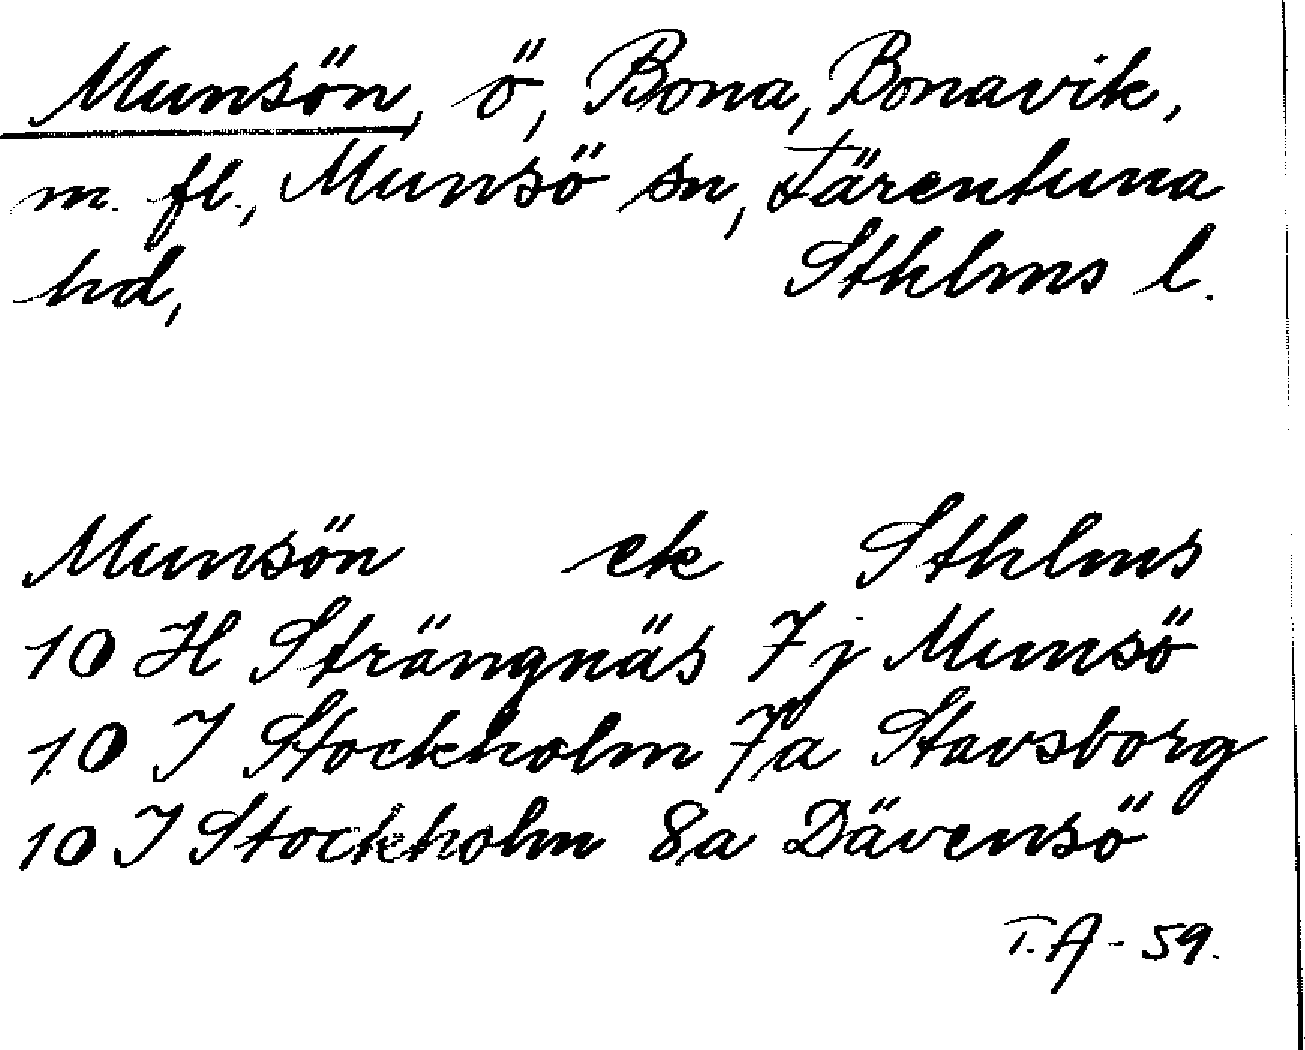 Munsön, ö, Bona, Bonavik,
m. fl., Munsö sn, Färentuna
hd, Sthlms l.
Munsön ek Sthlms
10 H Strängnäs 7j Munsö
10 I Stockholm 7a Stavsborg
10 I Stockholm 8a Dävensö
T.A - 59.